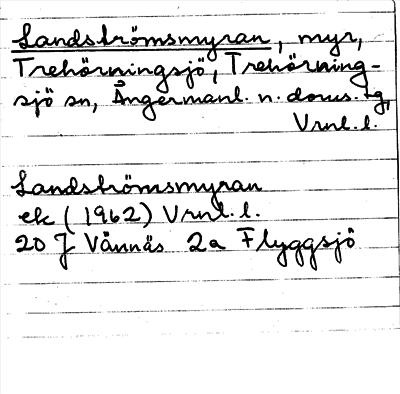 Landströmsmyran, myr,
Trehörningsjö, Trehörning-
sjö sn, Ångermanl. n. doms. tg,
Vrnl. l.
Landströmsmyran
ek (1962) Vrnl. l.
20 J Vännäs 2a Flyggsjö